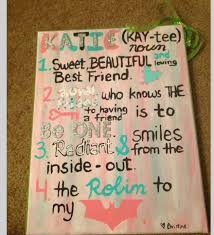 KATIE (KAY-tee)
noun
1. Sweet, BEAUTIFUL and loving
Best Friend.
2. who knows THE
KEY to having
a friend is to
BE ONE.
3. Radiant & smiles
from the
inside-out.
4. the Robin to
my